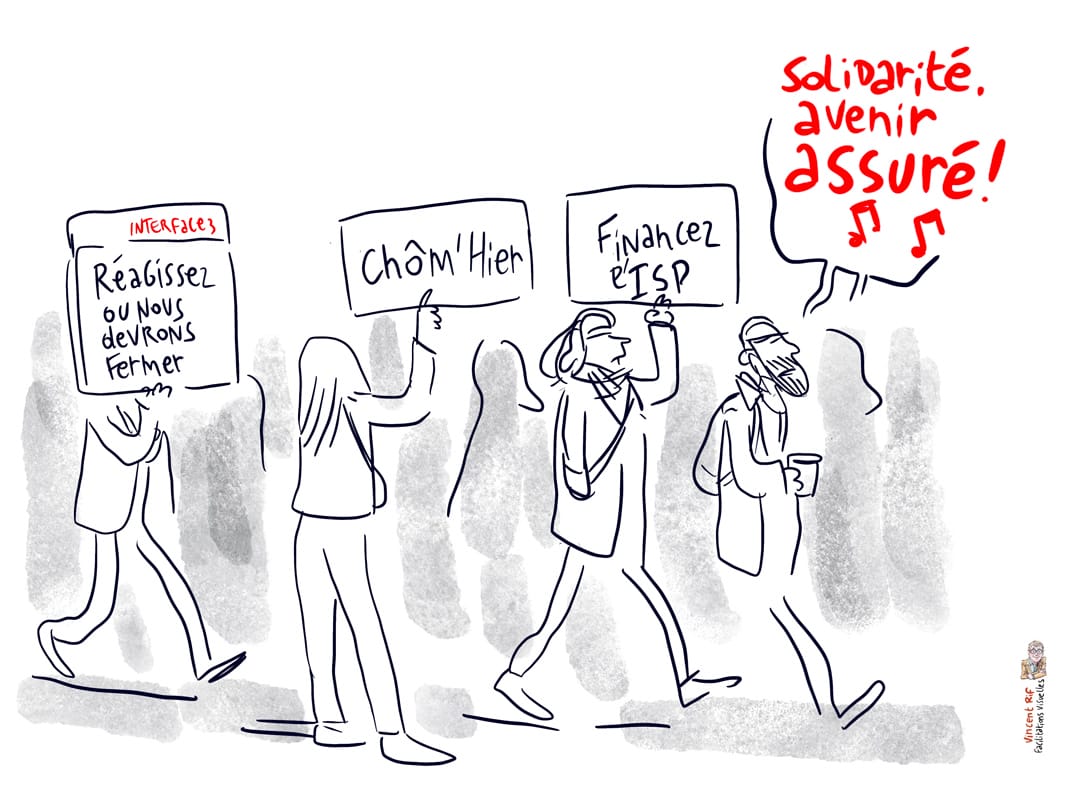 Solidarité,
avenir
assuré!
INTERFACE3
Réagissez
ou nous
devrons
fermer
Chôm'Hier
Financez
l'ISP
Vincent Rif
Facilitations Visuelles